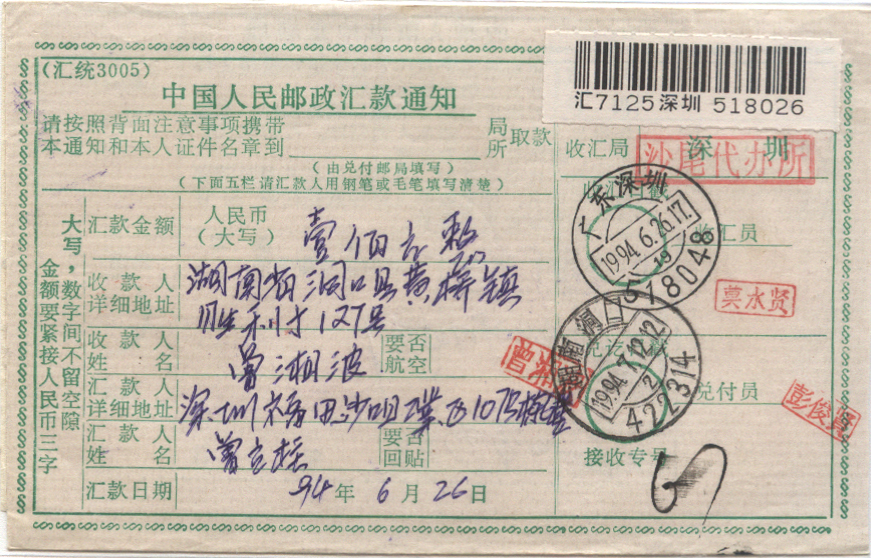 汇7125深圳 518026
(汇统3005)
中国人民邮政汇款通知
请按照背面注意事项携带
本通知和本人证件名章到
局
所
取款
(由兑付邮局填写)
(下面五栏请汇款人用钢笔或毛笔填写清楚)
收汇局 深 圳
沙尾代办所
大写,数字间不留空隙
金额要紧接人民币三字
汇款金额
人民币
(大写)
壹佰元整
收款人
详细地址
湖南省洞口县黄桥镇
胜利村127号
收款人
姓名
曾湘波
要否
航空
汇款人
详细地址
深圳福田沙咀
汇款人
姓名
要否
回贴
汇款日期
94年6月26日
广东深圳
1994.6.26.17.
19
518048
收汇员
莫水贤
湖南洞口
1994.7.12.12
2
422314
兑付员
彭俊贤
接收专号